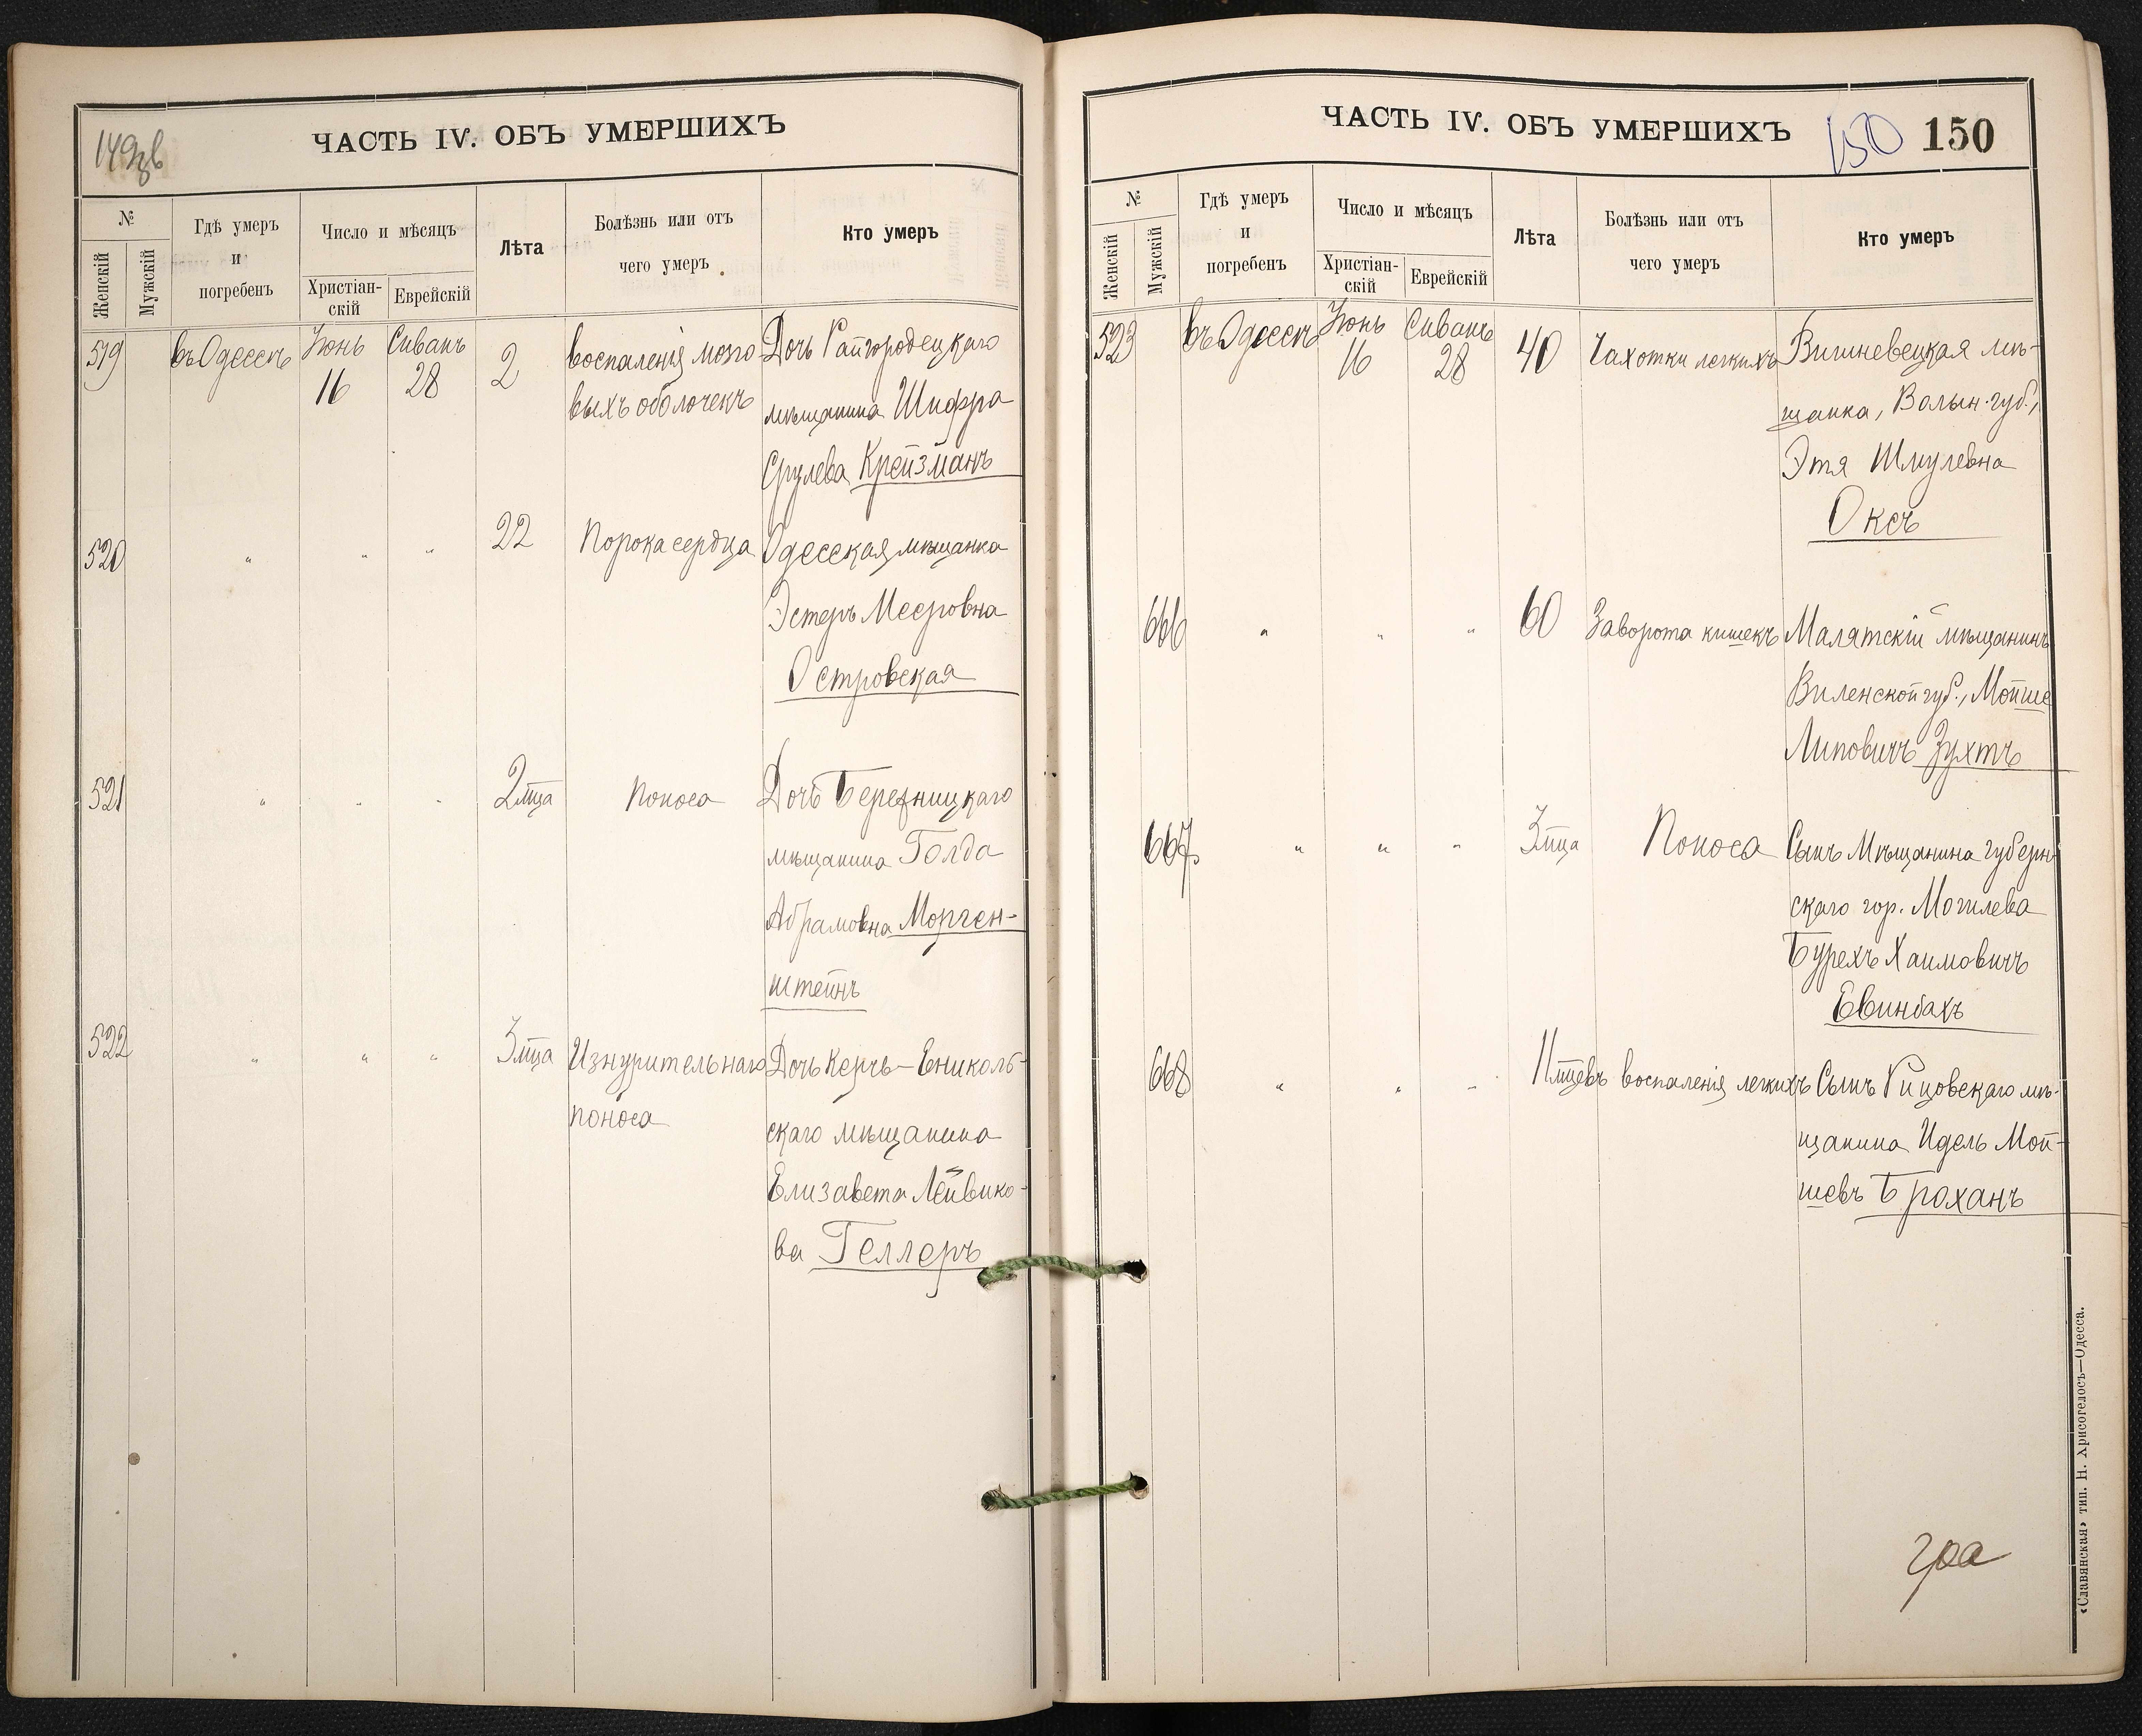 149зв
ЧАСТЬ IV. ОБЪ УМЕРШИХЪ
№
Женскій
Мужскій
Гдѣ умеръ
и
погребенъ
Число и мѣсяцъ
Христіан-
скій
Еврейскій
Лѣта
Болѣзнь или отъ
чего умеръ
Кто умеръ
519 въ Одессѣ Іюнь Сиванъ 2 воспаленія мозго Дочь Райгородецкаго
16 28 выхъ оболочекъ мѣщанина Шифра
Срулева Крейзманъ
520 " " " 22 Порока сердца Одесская мѣщанка
Эстеръ Мееровна
Островская
521 " " " 2 м̅ца Поноса Дочь Березницкаго
мѣщанина Голда
Абрамовна Морген-
штейнъ
522 " " " 3 м̅ца Изнурительнаго Дочь Керчь-Ениколь-
поноса скаго мѣщанина
Елизавета Лейвико-
ва Геллеръ
ЧАСТЬ IV. ОБЪ УМЕРШИХЪ
150 150
№
Женскій
Мужскій
Гдѣ умеръ
и
погребенъ
Число и мѣсяцъ
Христіан-
скій
Еврейскій
Лѣта
Болѣзнь или отъ
чего умеръ
Кто умеръ
523 въ Одессѣ Іюнь Сиванъ 40 Чахотки легкихъ Вишневецкая мѣ-
16 28 щанка, Волын. губ.,
Этя Шмулевна
Оксъ
666 " " " 60 Заворота кишекъ Малятскій мѣщанинъ
Виленской губ., Мойше
Липовичъ Зухтъ
667 " " " 3 м̅ца Поноса Сынъ Мѣщанина губерн
скаго гор. Могилева
Бурехъ Хаимовичъ
Евинбахъ
668 " " " 11 м̅цевъ воспаленія легкихъ Сынъ Рицовскаго мѣ-
щанина Идель Мой-
шевъ Броханъ
«Славянская» тип. Н. Хрисогелосъ—Одесса.